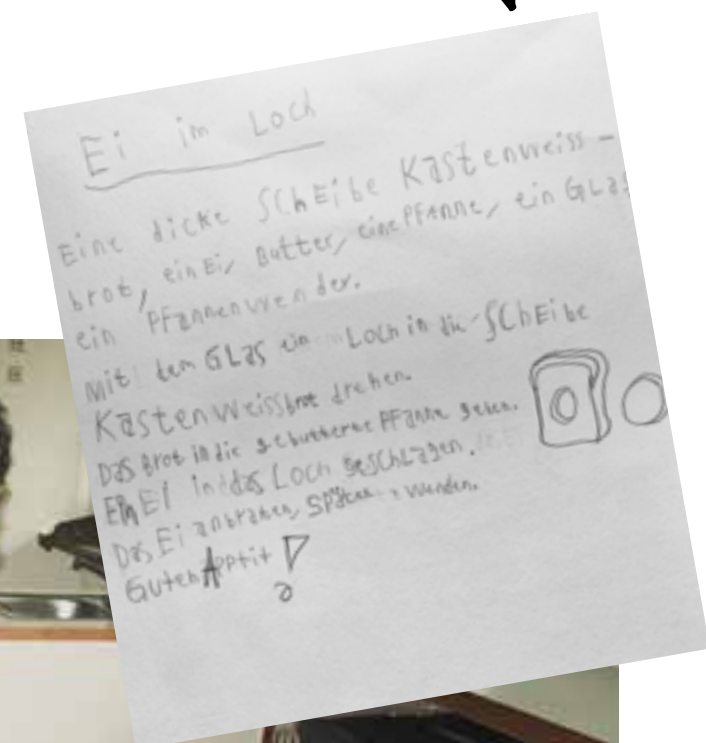 Ei im Loch
Eine dicke SchEibe Kastenweiss-
brot, ein Ei, Butter, eine Pfanne, ein GLas
ein Pfannenwender.
Mit dem GLas ein Loch in die SchEibe
Kastenweissbrot drehen.
Das Brot in die gebutterte Pfanne geben.
Ein Ei in das Loch geschLagen.
Das Ei anbraten, später wenden.
Guten Apptit!